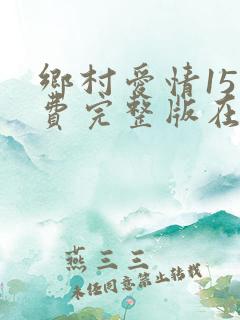 鄉村愛情15
費完整版在
燕三三
未经同意禁止转载